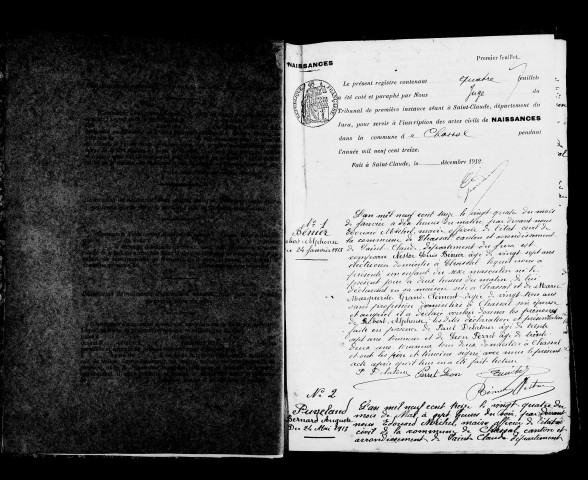 NAISSANCES
Premier feuillet.
Le présent registre contenant quatre feuillets
a été coté et paraphé par Nous Juge du
Tribunal de première instance séant à Saint-Claude, département du
Jura, pour servir à l'inscription des actes civils de NAISSANCES
dans la commune d e Chassal pendant
l'année mil neuf cent treize.
Fait à Saint-Claude, le décembre 1912
N° 1
Bénier
Alphonse
24 Janvier 1913
L'an mil neuf cent treize le vingt quatre du mois
de Janvier à dix heures du matin par devant nous
Edouard Michel, maire officier de l'état civil de
la commune de Chassal canton et arrondissement
de Saint Claude département du Jura est
comparu Nestor Bénier âgé de vingt sept ans
électricien domicilié à Chassal lequel nous a
présenté un enfant du sexe masculin né le
présent jour à deux heures du matin de lui
déclarant en sa maison sise à Chassal et de Marie
Marguerite Grand Clément âgée de vingt ans
sans profession domiciliée à Chassal son épouse
et auquel il a déclaré vouloir donner les prénoms
de Alphonse, lesdites déclaration et présentation
faites en présence de Paul Delatour âgé de trente
sept ans tourneur et de Léon Perret âgé de trente
deux ans tourneur tous deux domiciliés à Chassal
et ont les père et témoins signé avec nous le présent
acte après qu'il leur en a été fait lecture
Perret Léon
N° 2
Pugeland
Bernard Auguste
Du 24 Mai 1913
L'an mil neuf cent treize le vingt quatre du
mois de Mai, à sept heures du soir, par devant
nous Edouard Michel, maire officier de l'état
civil de la commune de Chassal, canton et
arrondissement de Saint Claude département